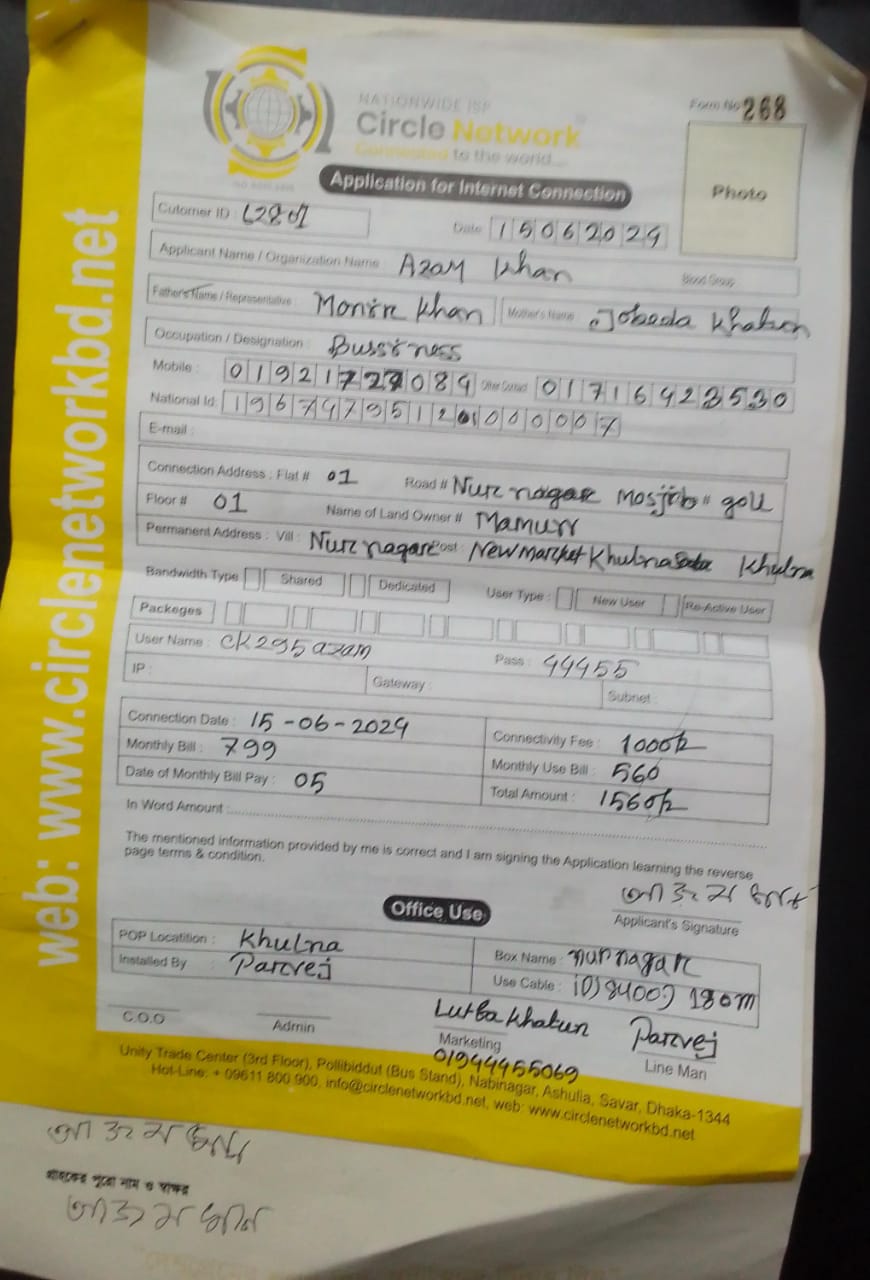 NATIONWIDE ISP
Circle Network
Connected to the world....
Form No 268
Photo
Application for Internet Connection
Cutomer ID :
Date 15062024
Applicant Name / Organization Name : Azam Khan
Blood Group
Father's Name / Representative : Monir Khan Mother's Name Jobeda Khatun
Occupation / Designation : Bussiness
Mobile : 01921727084 Other Contact 01716423530
National Id: 19674795120000007
E-mail :
Connection Address : Flat # 01 Road # Nur nagar Mosjid goli
Floor # 01 Name of Land Owner # Mamun
Permanent Address : Vill : Nur nagar Post : New Market Khulna Sadar Khulna
Bandwidth Type Shared Dedicated User Type : New User Re-Active User
Packeges
User Name : CK295azam Pass : 44455
IP : Gateway : Subnet :
Connection Date : 15-06-2024 Connectivity Fee : 1000
Monthly Bill : 799 Monthly Use Bill : 560
Date of Monthly Bill Pay : 05 Total Amount : 1560
In Word Amount :
The mentioned information provided by me is correct and I am signing the Application learning the reverse
page terms & condition.
আজম খান
Applicant's Signature
Office Use
POP Locatition : Khulna Box Name : nurnagar
Installed By Parvej Use Cable : 180m
Lutfa Khatun Parvej
C.O.O Admin Marketing Line Man
01944455069
Unity Trade Center (3rd Floor), Pollibiddut (Bus Stand), Nabinagar, Ashulia, Savar, Dhaka-1344
Hot-Line: + 09611 800 900, info@circlenetworkbd.net, web: www.circlenetworkbd.net
web: www.circlenetworkbd.net
আজম খান
গ্রাহকের পুরো নাম ও স্বাক্ষর
আজম খান